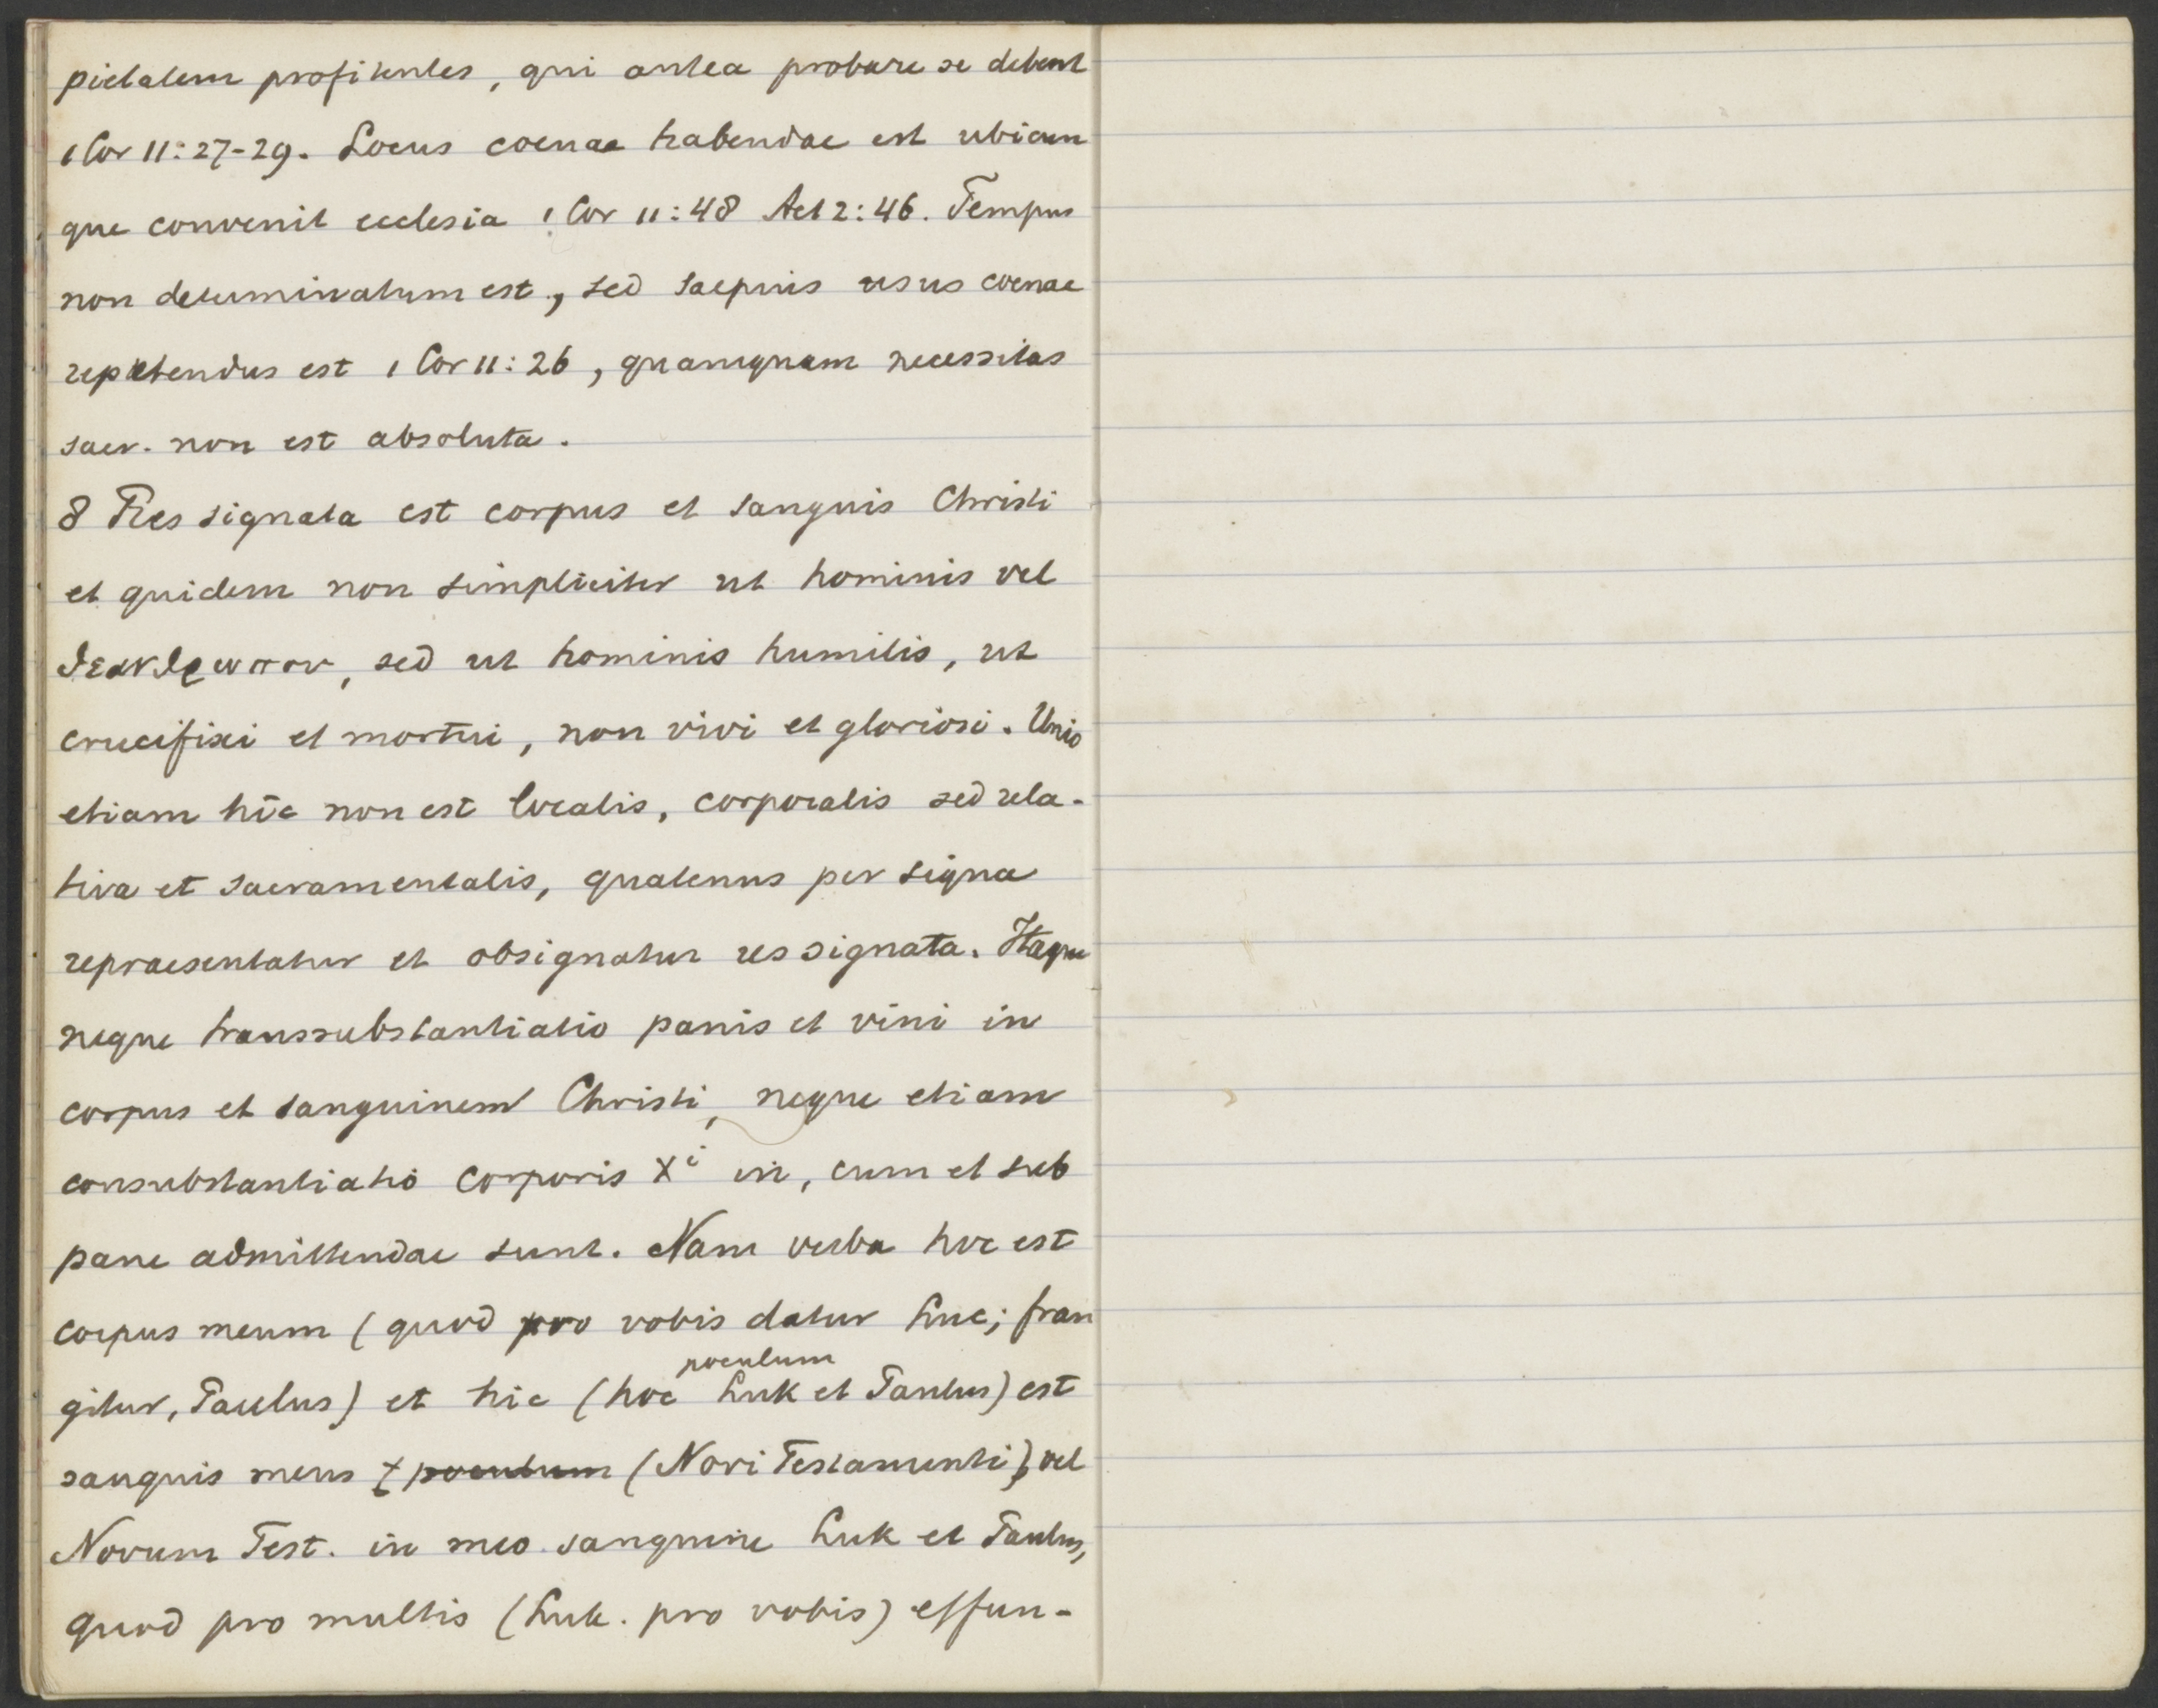 pietatem profitentes, qui antea probare se debent
1 Cor 11:27-29. Locus coenae habendae est ubicun
que convenit ecclesia 1 Cor 11:48 Act 2:46. Tempus
non determinatum est, sed saepius usus coenae
repetendus est 1 Cor 11:26, quamquam necessitas
sacr. non est absoluta.
8 Res signata est corpus et sanguis Christi
et quidem non simpliciter ut hominis vel
θεανθρωπου, sed ut hominis humilis, ut
crucifixi et mortui, non vivi et gloriosi. Unio
etiam hic non est localis, corporalis sed rela-
tiva et sacramentalis, quatenus per signa
repraesentatur et obsignatur res signata. Itaque
neque transsubstantiatio panis et vini in
corpus et sanguinem Christi, neque etiam
consubstantiatio corporis Xi in, cum et sub
pane admittendae sunt. Nam verba hoc est
corpus meum (quod pro vobis datur Luc; fran
gitur, Paulus) et hic (hoc poculum Luk et Paulus) est
sanguis meus (poculum (Novi Testamenti) vel
Novum Test. in meo sanguine Luk et Paulus,
quod pro multis (Luk. pro vobis) effun-